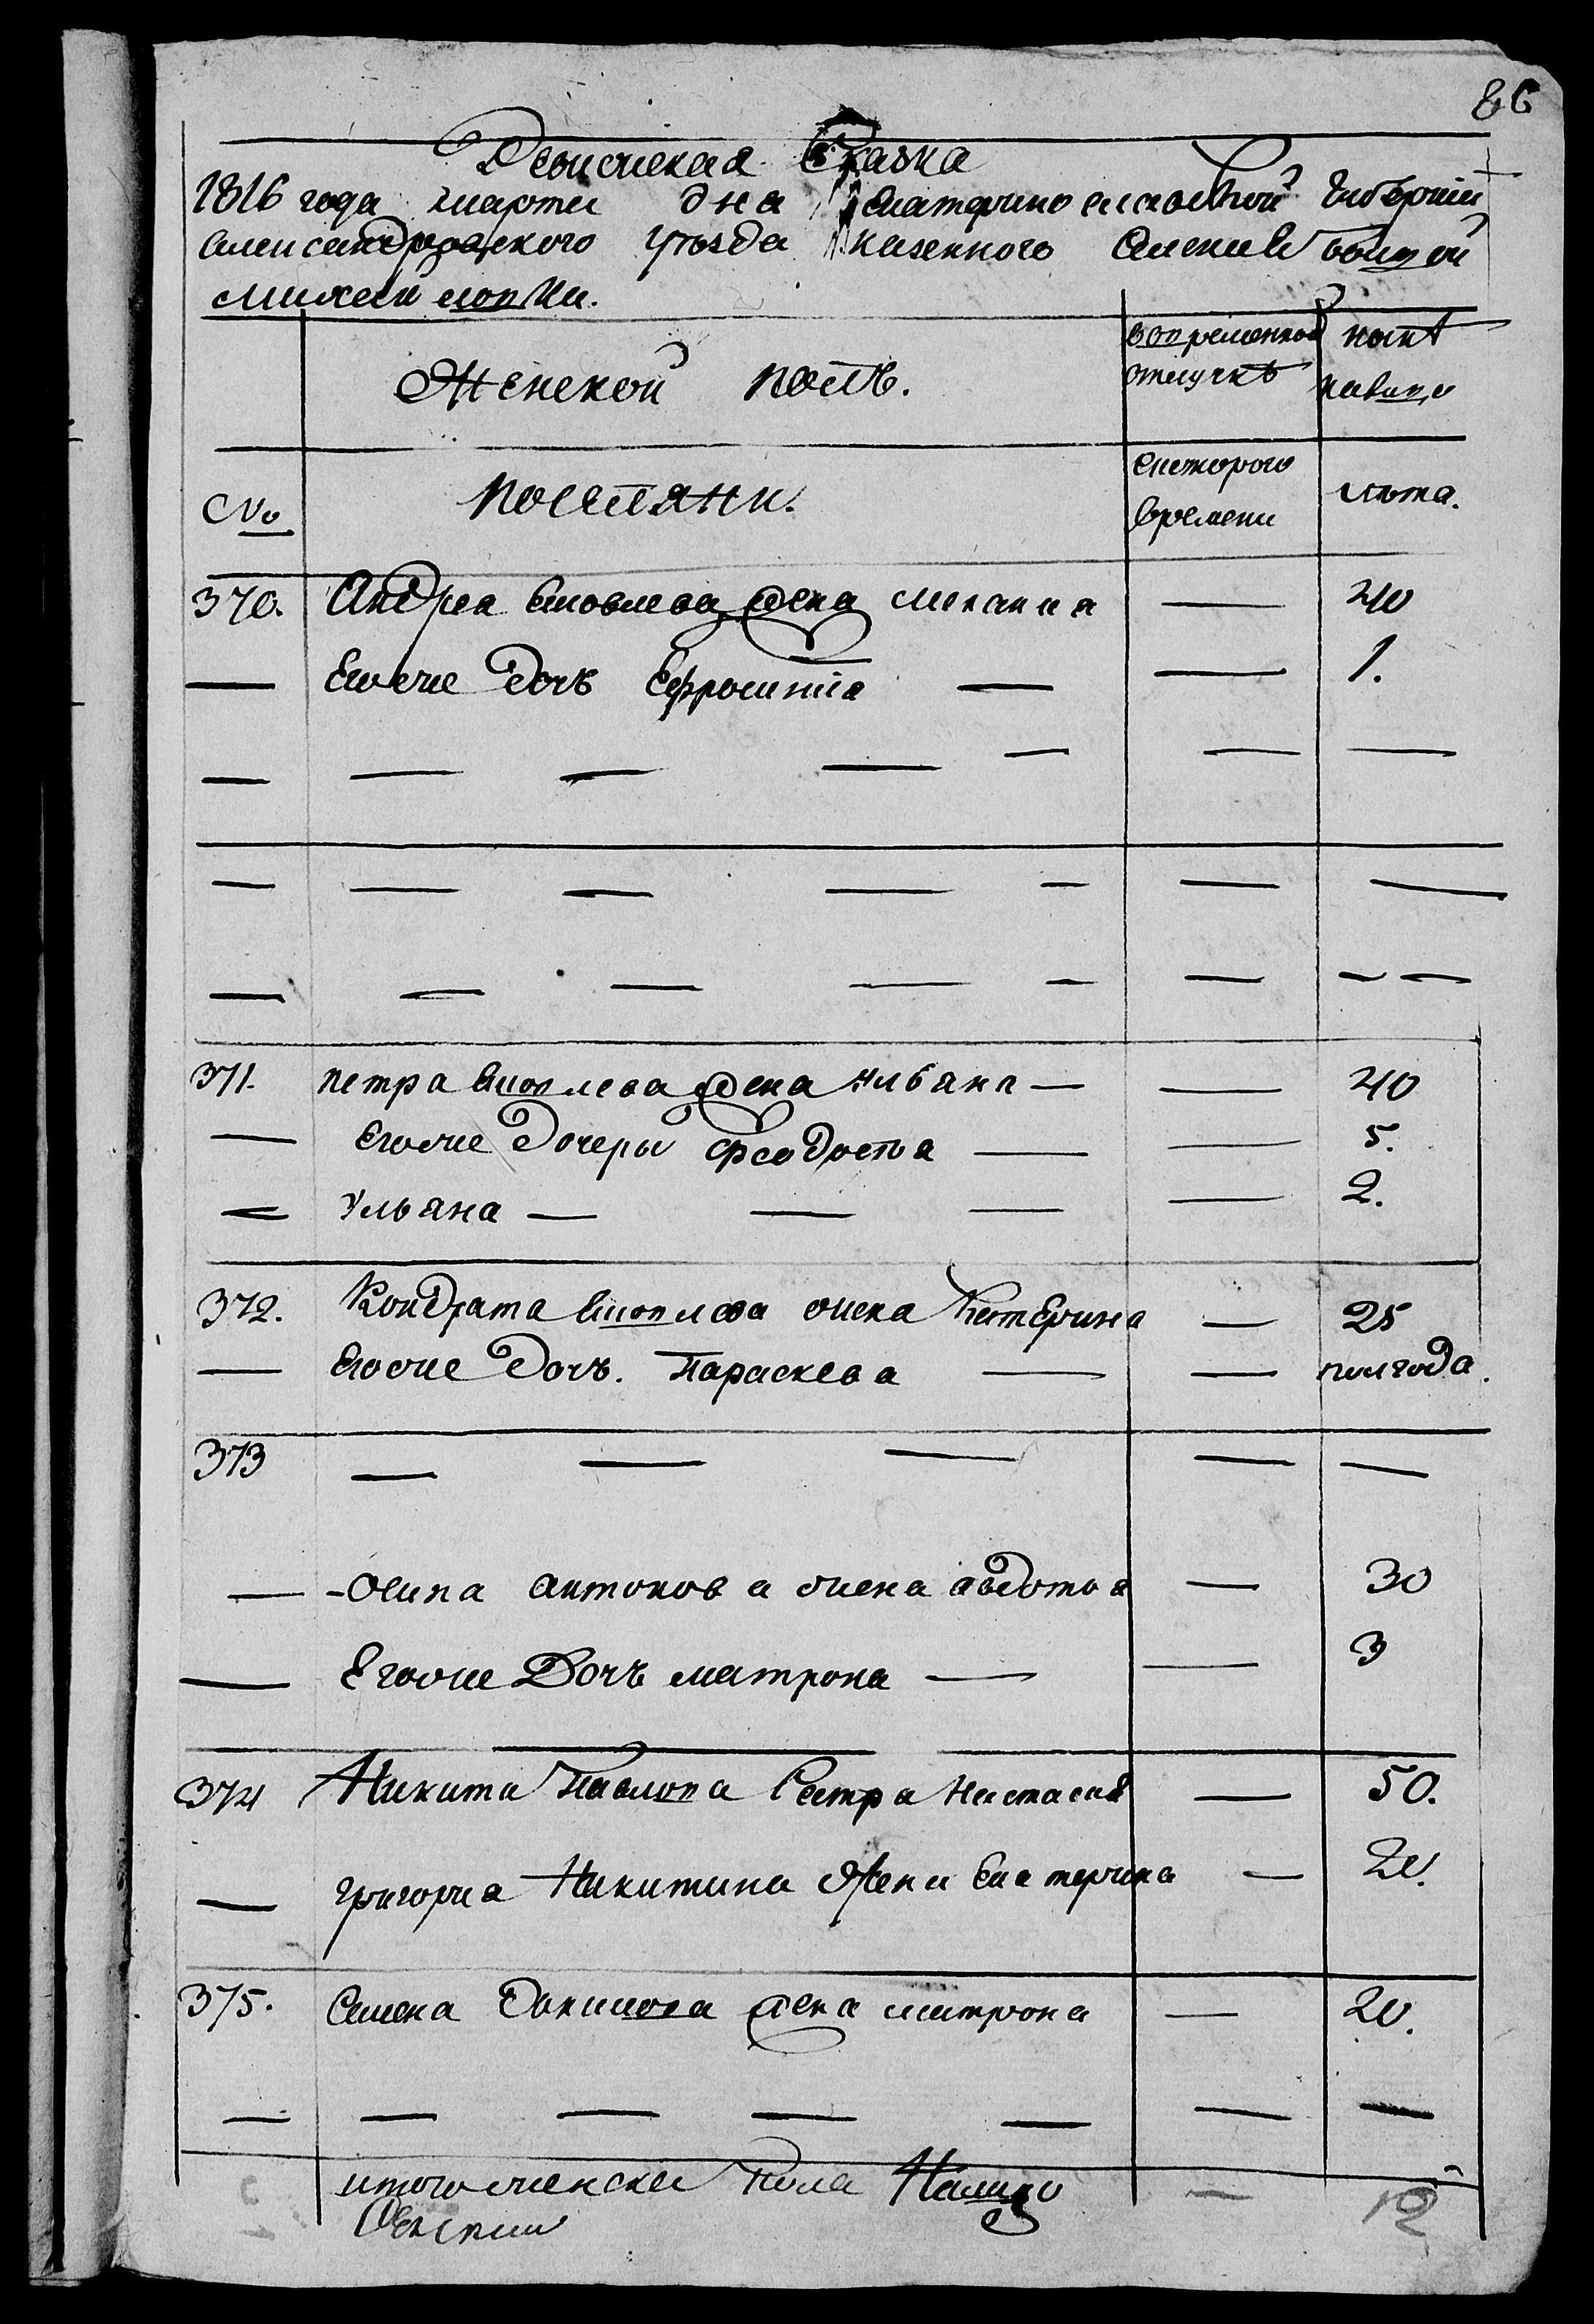 86
Ревизская Сказка
1816 года марта дня Екатеринославской губернии
александровского уезда казенного селения большой
михайловки.
Женской полъ.
во временной отлучкѣ
нынѣ налицо
№
Поселяни.
с которого времени
лѣта.
370. Андрея Яковлева жена мелания — 40
— Егоже дочъ Ефросиния — — 1.
— — — — — — —
— — — — — — —
— — — — — — — —
371. петра Яковлева жена ульяна — — 40
— Егоже дочеры Феодосья — — 5.
— Ульяна — — — — 2.
372. Кондрата Яковлева жена Катерина — 25
— Егоже дочъ. Параскева — — полгода.
373 — — — — —
— Осипа антонова жена авдотья — 30
— Егоже дочъ матрона — — 3
374 Никита Павлова Сестра Настасия — 50.
— григория Никитина Жена Екатерина — 20.
375. Семена жена матрона — 20.
— — — — — — —
итого женска пола Налицо — 12